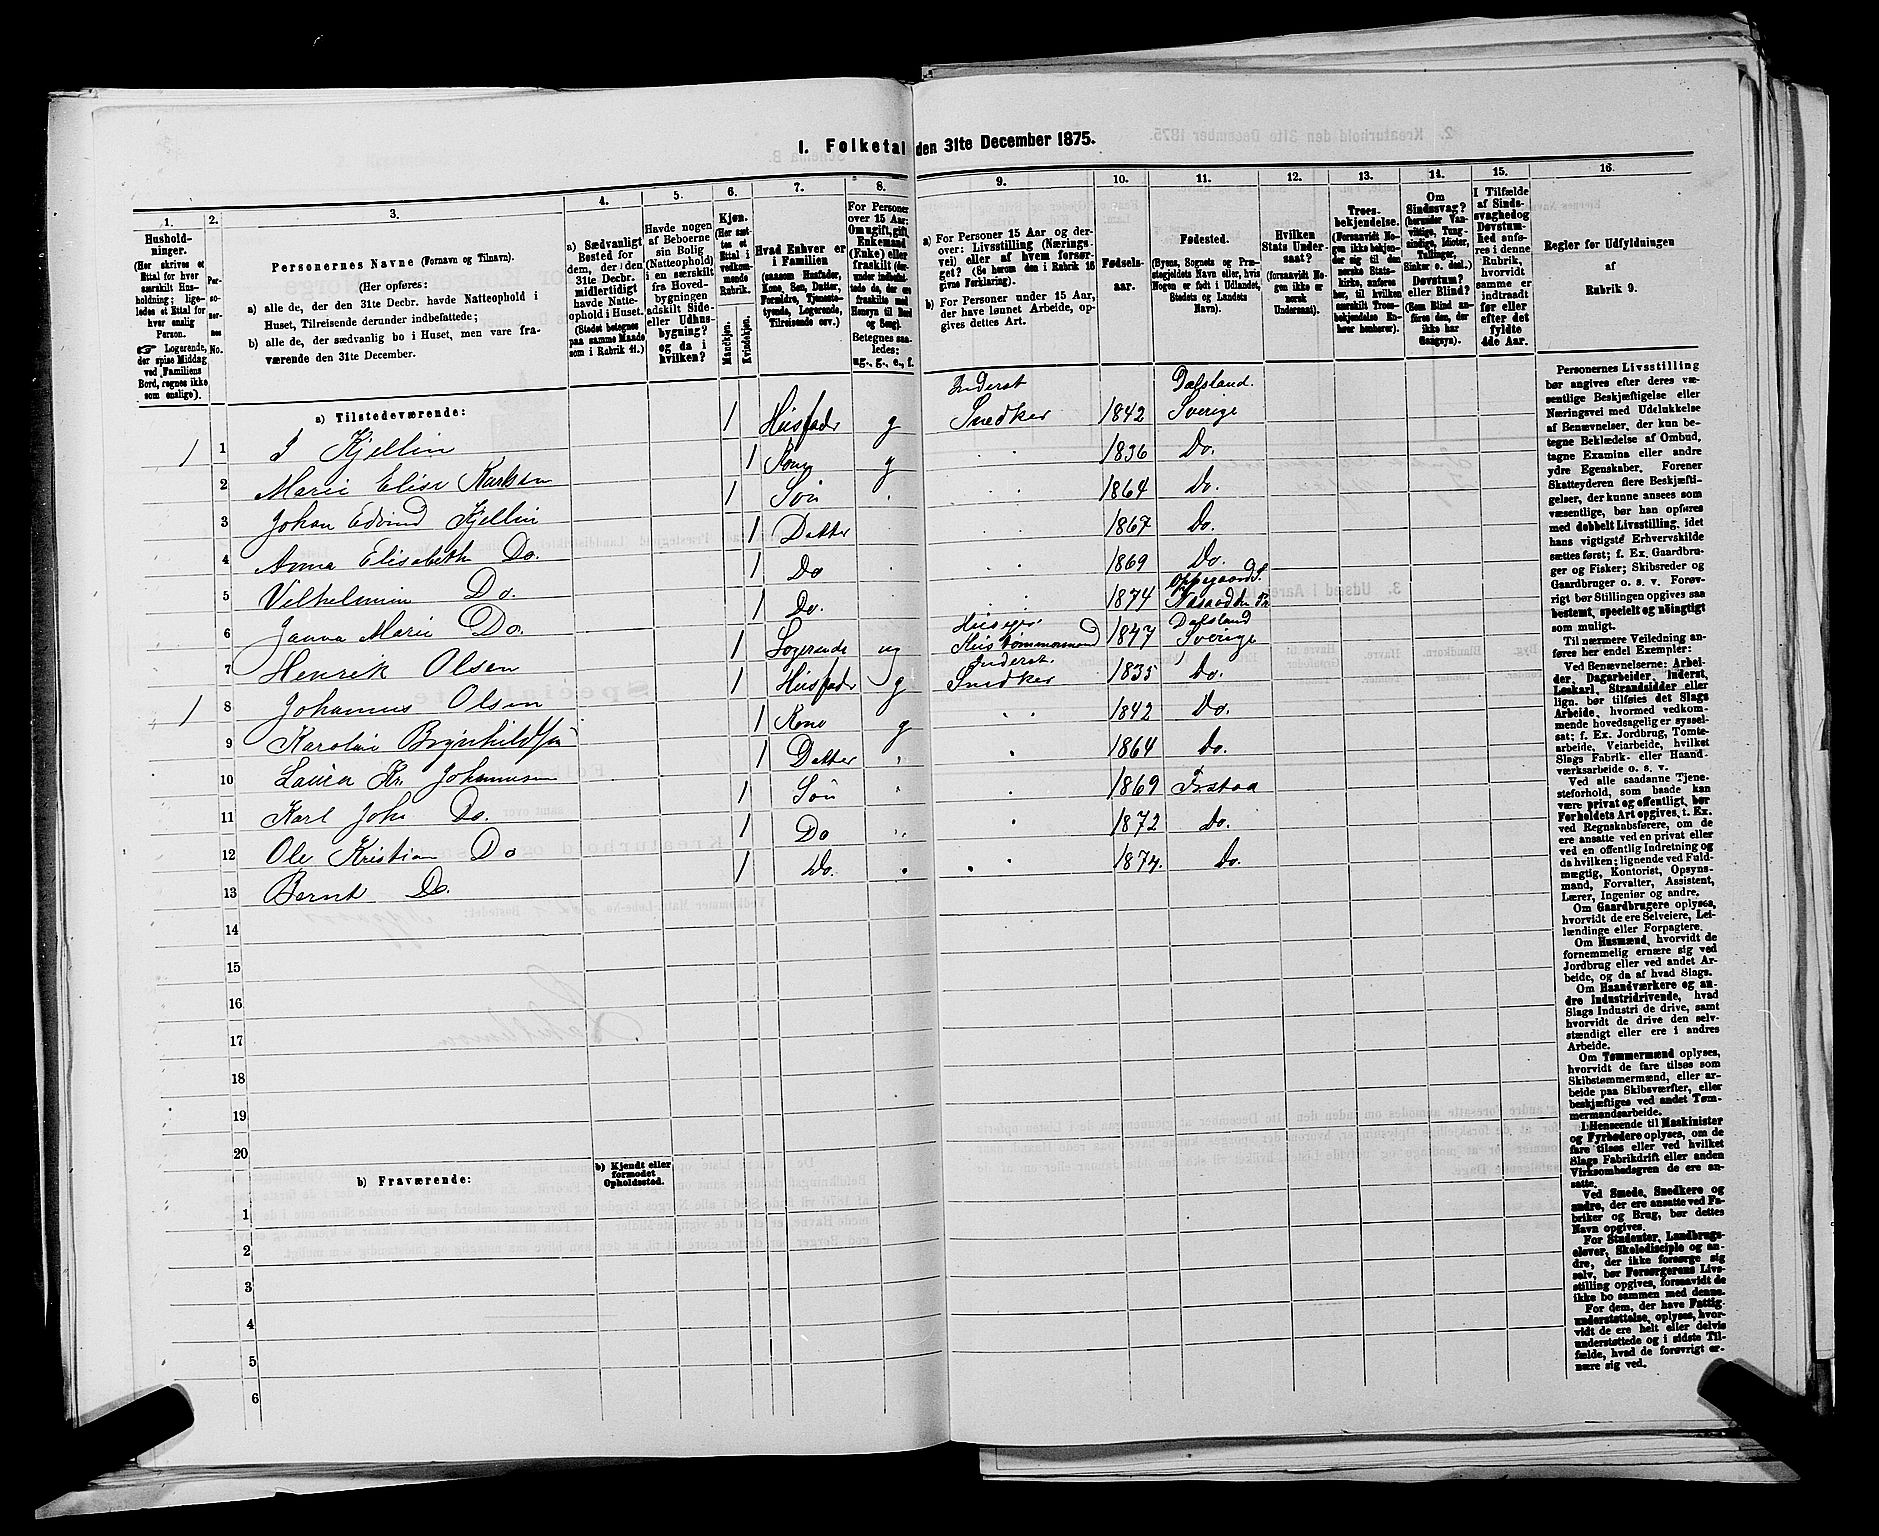 I. Folketal den 31te December 1875.
1. 2. 3. 4. 5. 6. 7. 8. 9. 10. 11. 12. 13. 14. 15. 16.
Hushold-
ninger.
(Her skrives et
Ettal for hver
særskilt Hus-
holdning; lige-
ledes et Ettal for
hver enslig
Person.
☞ Logerende,
der spise Middag
ved Familiens
Bord, regnes ikke
som enslige).
Per-
so-
ner-
nes
No.
Personernes Navne (Fornavn og Tilnavn).
(Her opføres:
a) alle de, der den 31te Decbr. havde Natteophold i
Huset, Tilreisende derunder indbefattede;
b) alle de, der sædvanlig bo i Huset, men vare fra-
værende den 31te December.
a) Sædvanligt
Bosted for
dem, der i den
31te Decbr.
midlertidigt
havde Natte-
ophold i Huset.
(Stedet betegnes
paa samme Maade
som i Rubrik 11.)
Havde nogen
af Beboerne
sin Bolig
(Natteophold)
i en særskilt
fra Hoved-
bygningen
adskilt Side-
eller Udhus-
bygning?
og da i
hvilken?
Kjøn.
(Her sæt-
tes et
Ettal i
vedkom-
mende
Rubrik.
Mandkjøn.
Kvindekjøn.
Hvad Enhver er
i Familien
(saasom Husfader,
Kone, Søn, Datter,
Forældre, Tjeneste-
tyende, Logerende,
Tilreisende osv.)
For Personer
over 15 Aar:
Om ugift, gift,
Enkemand
(Enke) eller
fraskilt (der-
under indbefat-
tede de, der ere
fraskilte med
Hensyn til Bord
og Seng).
Betegnes saa-
ledes:
ug., g., e., f.
a) For Personer 15 Aar og der-
over: Livsstilling (Nærings-
vei) eller af hvem forsør-
get? (Se herom den i Rubrik 16
givne Forklaring).
b) For Personer under 15 Aar,
der have lønnet Arbeide, op-
gives dettes Art.
Fødsels-
aar.
Fødested.
(Byens, Sognets og Præ-
stegjeldets Navn eller, hvis
Nogen er født i Udlandet,
Stedets og Landets
Navn).
Hvilken
Stats Under-
saat?
(forsaavidt No-
gen ikke er
norsk
Undersaat).
Troes-
bekjendelse.
(Forsaavidt No-
gen ikke bekjen-
der sig til den
norske Stats-
kirke, anføres
her, til hvilken
særskilt Troes-
bekjendelse En-
hver henhører).
Om
Sindssvag?
(herunder Van-
vittige, Tung-
sindige, Idioter,
Tullinger,
Sinker o. desl.)
Døvstum?
eller Blind?
(Som Blind an-
føres den, der
ikke har
Gangsyn).
I Tilfælde
af Sinds-
svaghed og
Døvstum-
hed anfø-
res i denne
Rubrik,
hvorvidt
samme er
indtraadt
før eller
efter det
fyldte
4de Aar.
Regler for Udfyldningen
af
Rubrik 9.
a) Tilstedeværende:
1 1 J Kjellin 1 Husfader g Inderst Snedker 1842 Dalsland. Sverige
2 Marie Elise Karlsen 1 Kone g 1836 Do.
3 Johan Edvind Kjellin 1 Søn 1864 Do.
4 Anna Elisabeth Do. 1 Datter 1867 Do.
5 Vilhelmin Do. 1 Do 1869 Do.
6 Janna Marie Do. 1 Do. 1874 Oppegaard S.
7 Henrik Olsen 1 Logerende ug Huseier Hustømmermand 1847 Dalsland Sverige
1 8 Johannes Olsen 1 Husfader g Inderst. Snedker 1835 Do.
9 Karoline Brynhildsen 1 Kone g 1842 Do.
10 Laura Kr. Johannesen 1 Datter 1864 Do.
11 Karl Joh. Do. 1 Søn 1869 Trstaa
12 Ole Kristian Do 1 Do 1872 Do.
13 Bernt Do. 1 Do. 1874. Do.
14
15
16
17
18
19
20
b) Fraværende:
b) Kjendt eller
formodet
Opholdssted.
1
2
3
4
5
6
Personernes Livsstilling
bør angives efter deres væ-
sentlige Beskjæftigelse eller
Næringsvei med Udelukkelse
af Benævnelser, der kun be-
tegne Beklædelse af Ombud,
tagne Examina eller andre
ydre Egenskaber. Forener
Skatteyderen flere Beskjæfti-
gelser, der kunne ansees som
væsentlige, bør han opføres
med dobbelt Livsstilling, idet
hans vigtigste Erhvervskilde
sættes først; f. Ex. Gaardbru-
ger og Fisker; Skibsreder og
Gaardbruger o. s. v. Forøv-
rigt bør Stillingen opgives saa
bestemt, specielt og nøiagtigt
som muligt.
Til nærmere Veiledning an-
føres her endel Exempler:
Ved Benævnelserne: Arbei-
der, Dagarbeider, Inderst,
Løskarl, Strandsidder eller
lign. bør tilføies det Slags
Arbeide, hvormed vedkom-
mende hovedsagelig er syssel-
sat; f. Ex. Jordbrug, Tomte-
arbeide, Veiarbeide, hvilket
Slags Fabrik- eller Haand-
værksarbeide o. s. v.
Ved alle saadanne Tjene-
steforhold, som baade kan
være privat og offentligt, bør
Forholdets Art opgives, t. Ex.
ved Regnskabsførere, om de
ere ansatte ved en privat eller
ved en offentlig Indretning og
da hvilken; lignende ved Fuld-
mægtig, Kontorist, Opsyns-
mand, Forvalter, Assistent,
Lærer, Ingeniør og andre.
Om Gaardbrugere oplyses,
hvorvidt de ere Selveiere, Lei-
lændinge eller Forpagtere.
Om Husmænd, hvorvidt de
fornemmelig ernære sig ved
Jordbrug eller ved andet Ar-
beide, og da af hvad Slags.
Om Haandværkere og an-
dre Industridrivende, hvad
Slags Industri de drive, samt
hvorvidt de drive den selv-
stændigt eller ere i andres
Arbeide.
Om Tømmermænd oplyses,
hvorvidt de fare tilsøs som
Skibstømmermænd, eller ar-
beide paa Skibsværfter, eller
beskjæftiges ved andet Tøm-
mermandsarbeide.
I Henseende til Maskinister
og Fyrbødere oplyses, om de
fare tilsøs eller ved hvilket
Slags Fabrikdrift eller anden
Virksomhedsgren de ere an-
satte.
Ved Smede, Snedkere og
andre, der ere ansatte ved Fa-
briker og Brug, bør dettes
Navn opgives.
For Studenter, Landbrugs-
elever, Skoledisciple og an-
dre, der ikke forsørge sig
selv, bør Forsørgerens Livs-
stilling opgives, forsaavidt de
ikke bo sammen med denne.
For dem, der have Fattig-
understøttelse, oplyses, hvor-
vidt de ere helt eller delvis
understøttede og i sidste Til-
fælde, hvad de forøvrigt er-
nære sig ved.